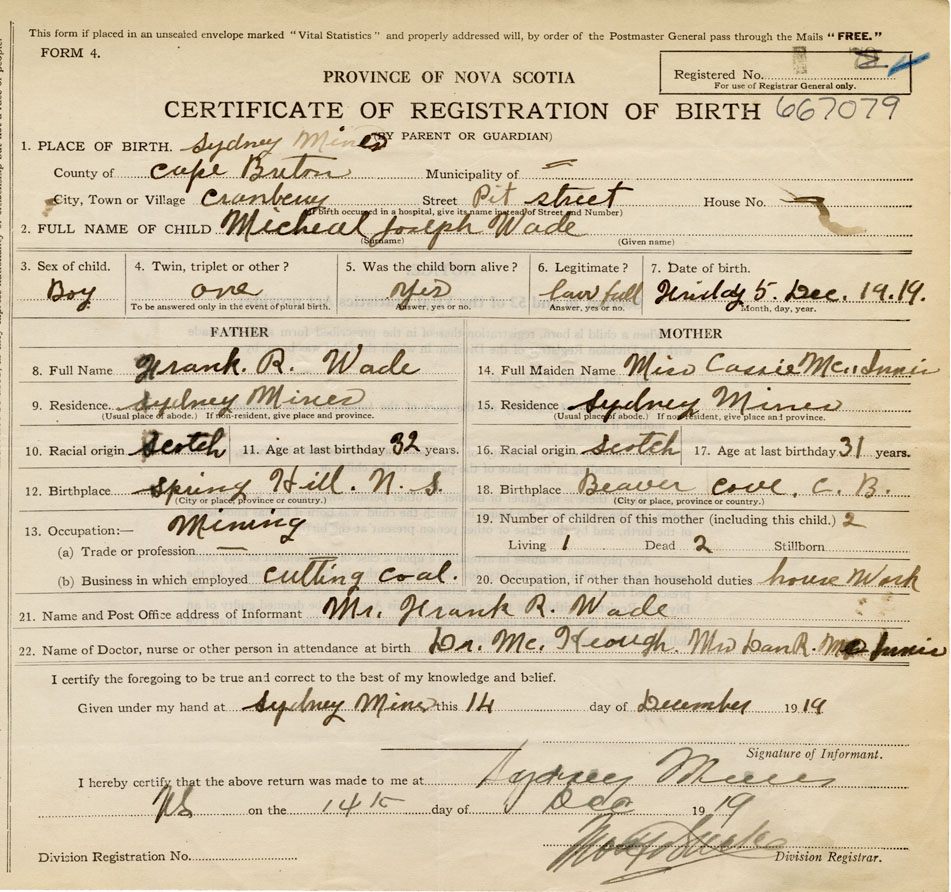 This form if placed in an unsealed envelope marked "Vital Statistics" and properly addressed will, by order of the Postmaster General pass through the Mails "FREE."
FORM 4.
PROVINCE OF NOVA SCOTIA
Registered No.
For use of Registrar General only.
CERTIFICATE OF REGISTRATION OF BIRTH 667079
(BY PARENT OR GUARDIAN)
1. PLACE OF BIRTH. Sydney Mines
County of Cape Breton Municipality of —
City, Town or Village Cranberry Street Pit street House No.
(If birth occurred in a hospital, give its name instead of Street and Number)
2. FULL NAME OF CHILD Micheal Joseph Wade
(Surname) (Given name)
3. Sex of child. 4. Twin, triplet or other? 5. Was the child born alive? 6. Legitimate? 7. Date of birth.
Boy one Yes lawfull Friday 5. Dec. 1919.
To be answered only in the event of plural birth. Answer, yes or no. Answer, yes or no. Month, day, year.
FATHER MOTHER
8. Full Name Frank. R. Wade 14. Full Maiden Name Miss Cassie Mc Innis
9. Residence. Sydney Mines 15. Residence Sydney Mines
(Usual place of abode.) If non-resident, give place and province. (Usual place of abode.) If non-resident, give place and province.
10. Racial origin Scotch 11. Age at last birthday 32 years. 16. Racial origin Scotch 17. Age at last birthday 31 years.
12. Birthplace Spring Hill. N. S. 18. Birthplace Beaver Cove. C. B.
(City or place, province or country.) (City or place, province or country.)
13. Occupation:— Mining 19. Number of children of this mother (including this child.) 2
(a) Trade or profession — Living 1 Dead 2 Stillborn
(b) Business in which employed cutting coal. 20. Occupation, if other than household duties house Work
21. Name and Post Office address of Informant Mr. Frank R. Wade
22. Name of Doctor, nurse or other person in attendance at birth Dr. Mc. Keough. Mrs Dan R. Mc Innis
I certify the foregoing to be true and correct to the best of my knowledge and belief.
Given under my hand at Sydney Mines this 14 day of December 1919
Signature of Informant.
I hereby certify that the above return was made to me at Sydney Mines
NS on the 14th day of Dec 1919
Division Registration No. Division Registrar.